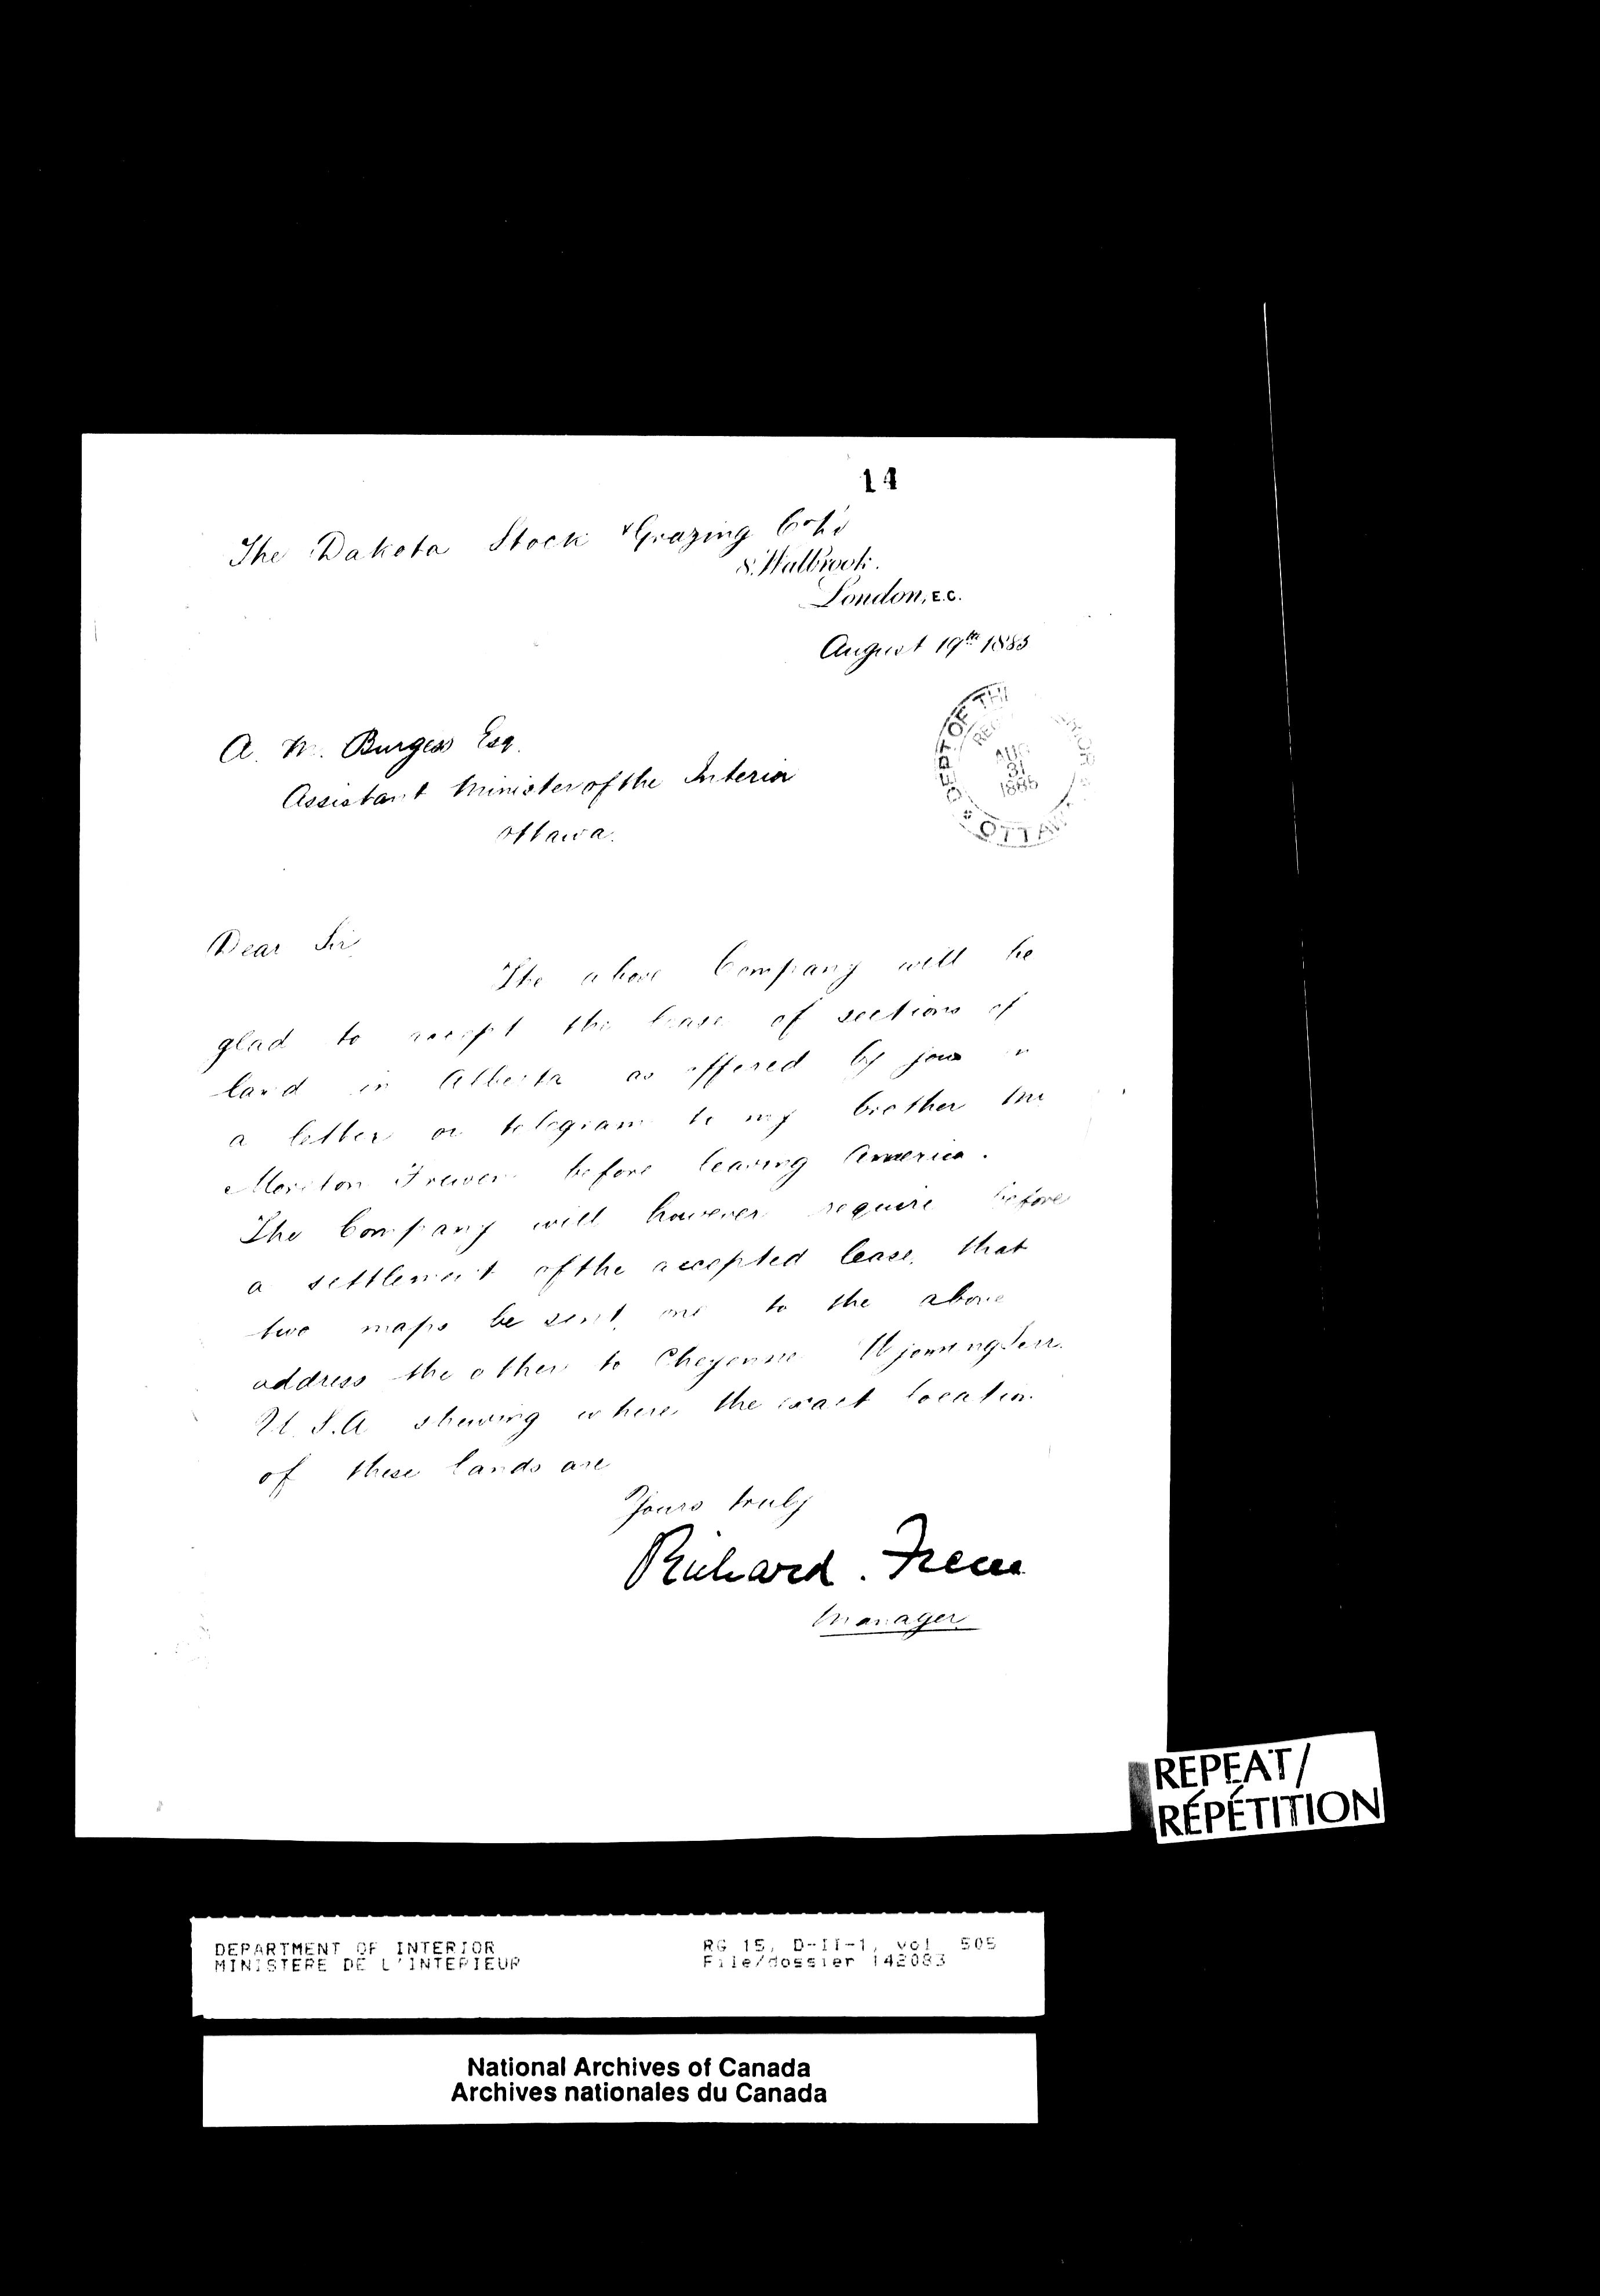 14
The Dakota Stock & Grazing Co Ld
8, Walbrook.
London, E.C.
August 19th 1885
DEPT OF THE INTERIOR
AUG
31
1885
OTTAWA
A. M. Burgess Esq.
Assistant Minister of the Interior
Ottawa.
Dear Sir
The above Company will be
glad to accept the lease of sections of
land in Alberta as offered by you in
a letter or telegram to my brother Mr
Moreton Frewen before leaving America.
The Company will however require before
a settlement of the accepted lease, that
two maps be sent, one to the above
address the other to Cheyenne Wyoming Terr.
U.S.A shewing where the exact location
of these lands are
Yours truly
Richard. Frewen
Manager
REPEAT/
RÉPÉTITION
DEPARTMENT OF INTERIOR RG 15, D-II-1, vol 505
MINISTERE DE L'INTERIEUR File/dossier 142083
National Archives of Canada
Archives nationales du Canada